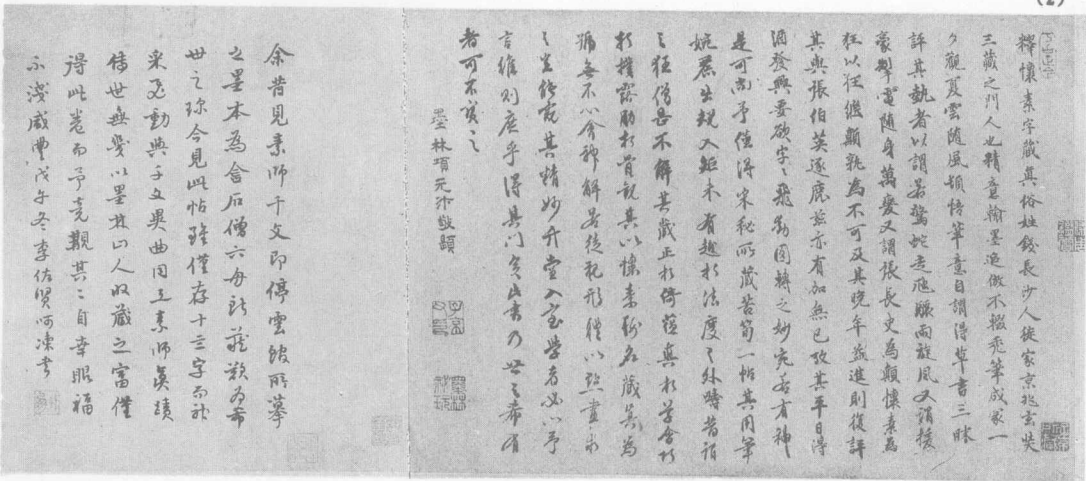 (2)
釋懷素字藏真俗姓錢長沙人徙家京兆玄奘
三藏之門人也精意翰墨追倣不輟禿筆成冢一
夕觀夏雲隨風頓悟筆意自謂得草書三昧
評其執者以謂若驚蛇走虺驟雨旋風又謂援
豪掣電隨身萬變又謂張長史為顛懷素為
狂以狂繼顛孰為不可及其晚年益進則復評
其與張伯英逐鹿茲亦有加無已攷其平日得
酒發興要欲字〻飛動圓轉之妙宛若有神
是可尚予僅得宋秘所藏苦筍一帖其用筆
婉麗出規入矩未有越於法度之外疇昔謂
之狂僧甚不解其藏正於倚蘊真於草含巧
於樸露肋於骨觀其以懷素稱名藏真為
號無不心會神解若徒視形體以點畫求
之豈能窮其精妙升堂入室學者必以予
言維則庶乎得其門矣此書乃世之希有
者可不寶之
墨林項元汴敬題
余昔見素師千文即停雲館所摹
之墨本為畲石僧六舟珎藏歎為希
世之珎今見此帖雖僅存十三字而神
采飛動與千文異曲同工素師真蹟
傳世無幾以墨林山人收藏之富僅
得此卷而予竟覯其二自幸眼福
不淺咸豐戊午冬李佐賢呵凍書